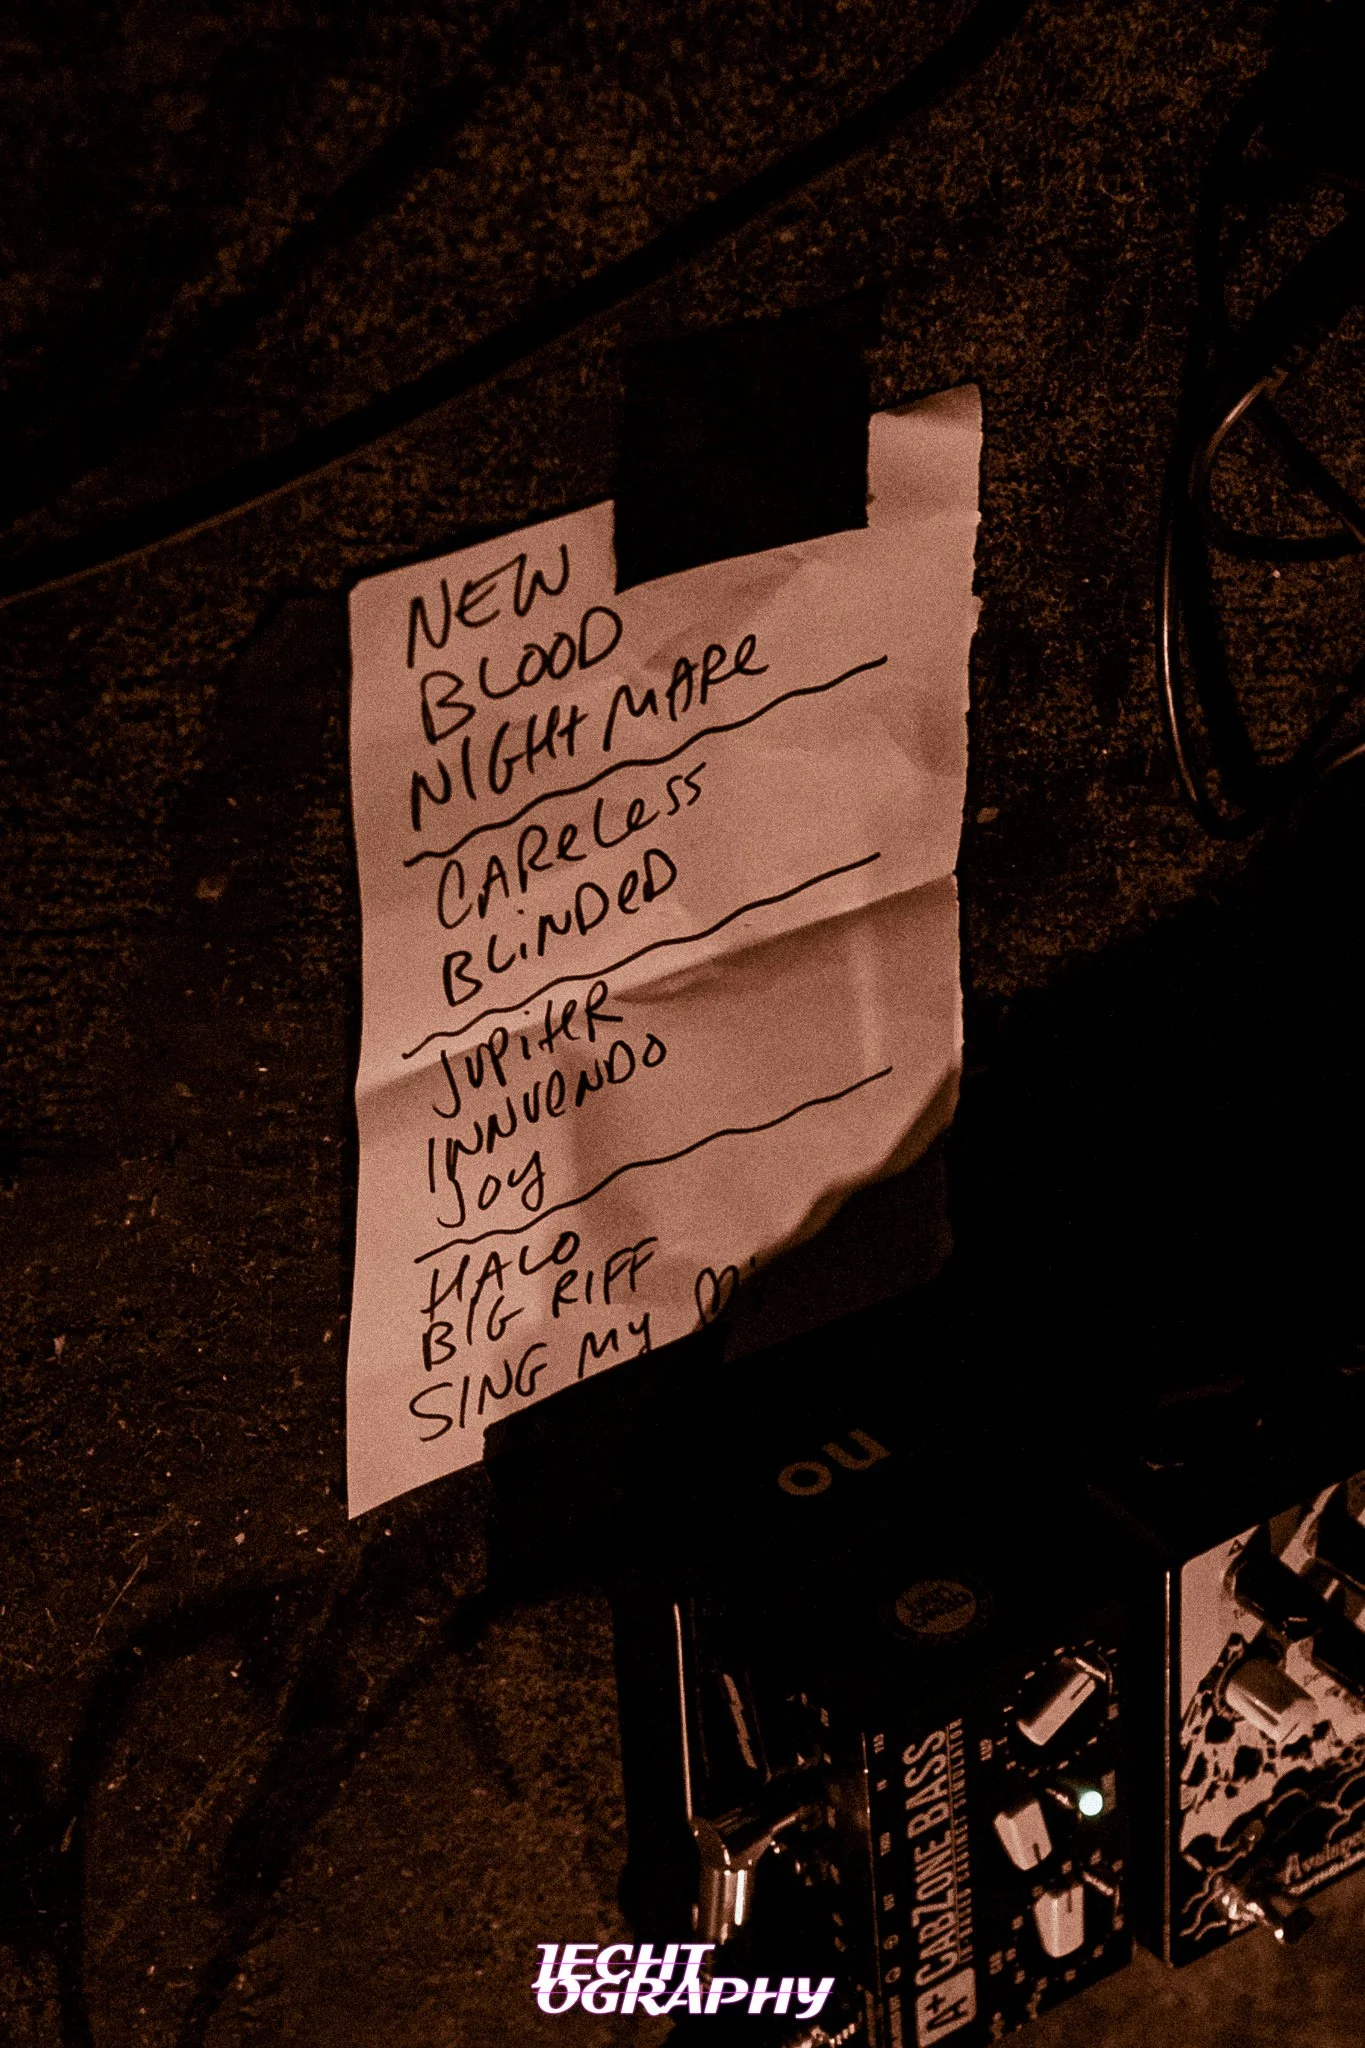 NEW
BLOOD
NIGHtMARe
CARELeSS
BLiNDeD
JUPiteR
INNUeNDO
Joy
HALO
BIG RIFF
SING My
no
A+ CABZONE BASS
1ECHT
OGRAPHY